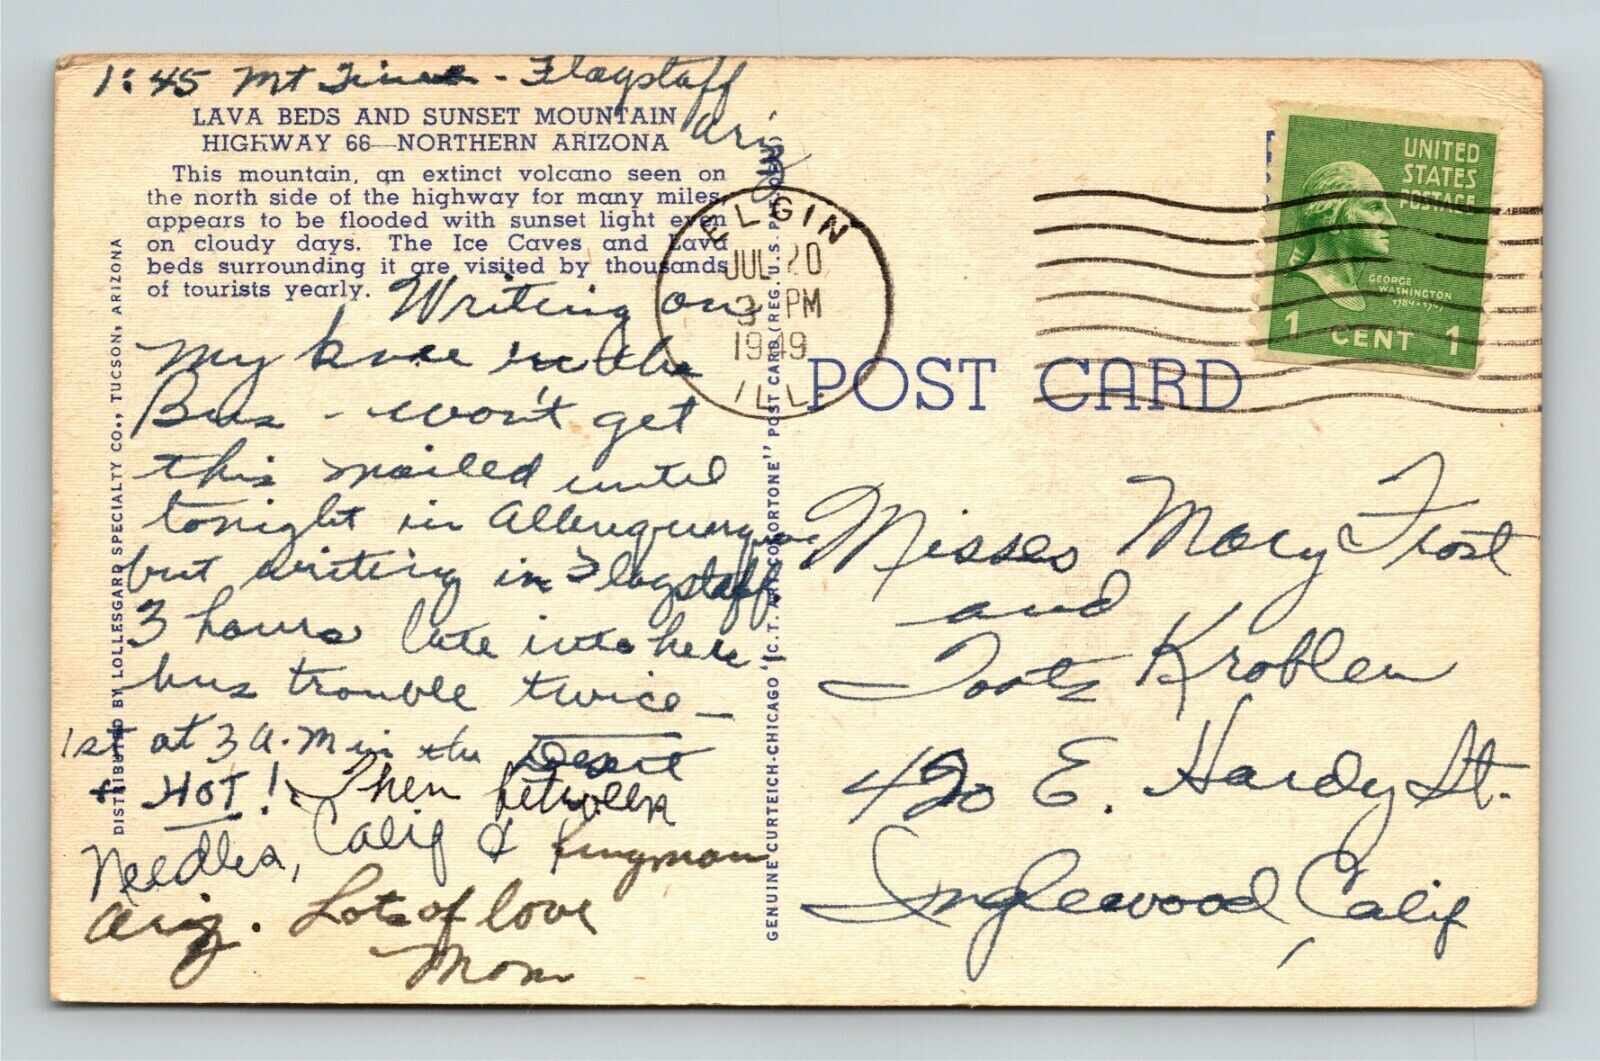 1:45 Mt Time - Flagstaff
Ariz
LAVA BEDS AND SUNSET MOUNTAIN
HIGHWAY 66—NORTHERN ARIZONA
This mountain, an extinct volcano seen on
the north side of the highway for many miles,
appears to be flooded with sunset light even
on cloudy days. The Ice Caves and Lava
beds surrounding it are visited by thousands
of tourists yearly.
Writing on
my knee in the
Bus - won't get
this mailed until
tonight in Albuquerque
but writing in Flagstaff
3 hours late into here -
bus trouble twice -
1st at 3 A.M in the Desert
+ HOT! Then between
Needles, Calif & Kingman
Ariz. Lots of love
Mom
DISTRIBUTED BY LOLLESGARD SPECIALTY CO., TUCSON, ARIZONA
GENUINE CURTEICH-CHICAGO "C.T. ART-COLORTONE" POST CARD (REG. U.S. PAT. OFF.)
ELGIN
JUL 20
3 PM
1949
ILL.
POST CARD
UNITED
STATES
POSTAGE
GEORGE
WASHINGTON
1789-1797
1 CENT 1
Misses Mary Frost
and
Toots Kroblen
420 E. Hardy St.
Inglewood, Calif